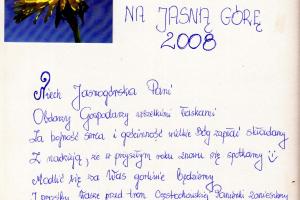 NA JASNĄ GÓRĘ
2008
Niech Jasnogórska Pani
Obdarzy Gospodarzy wszelkimi łaskami
Za hojność serca i gościnność wielkie Bóg zapłać składamy
Z nadzieją, że w przyszłym roku znowu się spotkamy
Modlić się za Was gorliwie będziemy
I prośby Wasze przed tron Częstochowskiej Panienki zaniesiemy